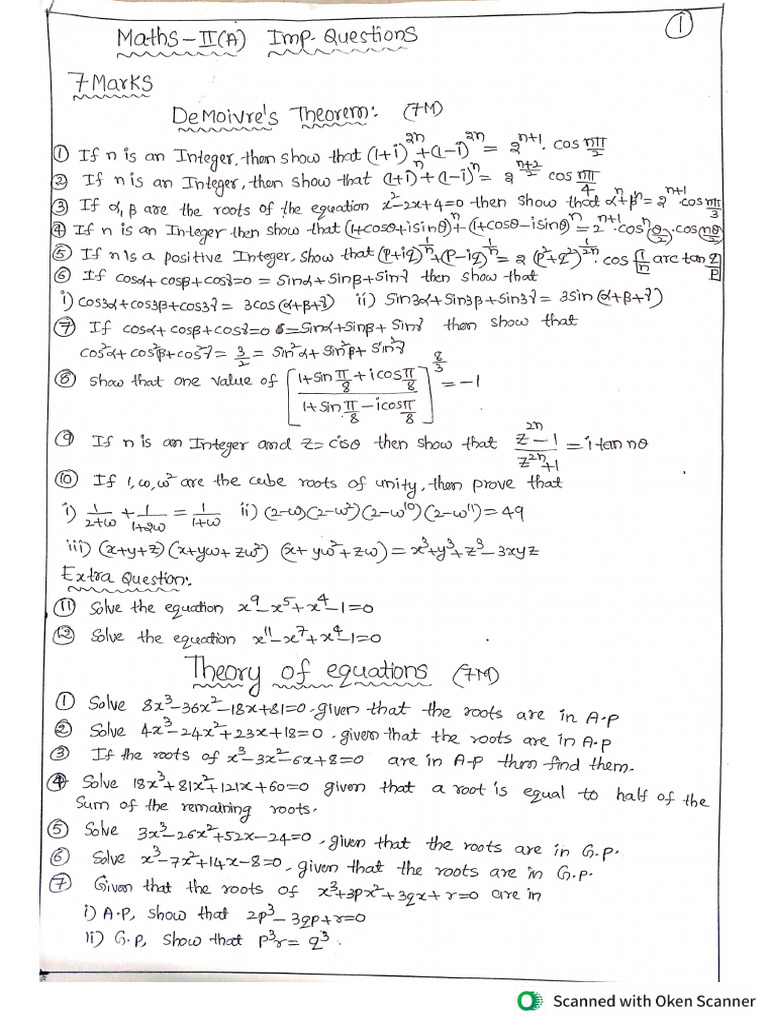 ①
Maths-II(A) Imp. Questions
7 Marks
DeMoivre's Theorem: (7M)
① If n is an Integer, then show that (1+i)²ⁿ+(1-i)²ⁿ = 2ⁿ⁺¹. cos nπ/2
② If n is an Integer, then show that (1+i)ⁿ+(1-i)ⁿ = 2^(n+2)/2 cos nπ/4
③ If α, β are the roots of the equation x²-2x+4=0 then show that αⁿ+βⁿ=2ⁿ⁺¹.cos nπ/3
④ If n is an Integer then show that (1+cosθ+isinθ)ⁿ+(1+cosθ-isinθ)ⁿ=2ⁿ⁺¹.cosⁿ(θ/2).cos(nθ/2)
⑤ If n is a positive Integer, show that (P+iq)^1/n+(P-iq)^1/n=2(P²+q²)^1/2n.cos[1/n arc tan q/p]
⑥ If cosα+cosβ+cosγ=0=Sinα+Sinβ+Sinγ then show that
i) cos3α+cos3β+cos3γ=3cos(α+β+γ) ii) Sin3α+Sin3β+Sin3γ=3sin(α+β+γ)
⑦ If cosα+cosβ+cosγ=0 =Sinα+Sinβ+Sinγ then show that
cos²α+cos²β+cos²γ=3/2=Sin²α+Sin²β+Sin²γ
⑧ Show that one value of [(1+Sin π/8+icos π/8)/(1+Sin π/8-icos π/8)]^8/3=-1
⑨ If n is an Integer and z=cisθ then show that (z²ⁿ-1)/(z²ⁿ+1)=i tan nθ
⑩ If 1,ω,ω² are the cube roots of unity, then prove that
i) 1/(2+ω)+1/(1+2ω)=1/(1+ω) ii) (2-ω)(2-ω²)(2-ω¹⁰)(2-ω¹¹)=49
iii) (x+y+z)(x+yω+zω²)(x+yω²+zω)=x³+y³+z³-3xyz
Extra Question:
⑪ Solve the equation x⁹-x⁵+x⁴-1=0
⑫ Solve the equation x¹¹-x⁷+x⁴-1=0
Theory of equations (7M)
① Solve 8x³-36x²-18x+81=0. given that the roots are in A.P
② Solve 4x³-24x²+23x+18=0. given that the roots are in A.P
③ If the roots of x³-3x²-6x+8=0 are in A.P then find them.
④ Solve 18x³+81x²+121x+60=0 given that a root is equal to half of the
Sum of the remaining roots.
⑤ Solve 3x³-26x²+52x-24=0, given that the roots are in G.P.
⑥ Solve x³-7x²+14x-8=0, given that the roots are in G.P.
⑦ Given that the roots of x³+3px²+3qx+r=0 are in
i) A.P, show that 2p³-3qp+r=0
ii) G.P, Show that p³r=q³.
Scanned with Oken Scanner